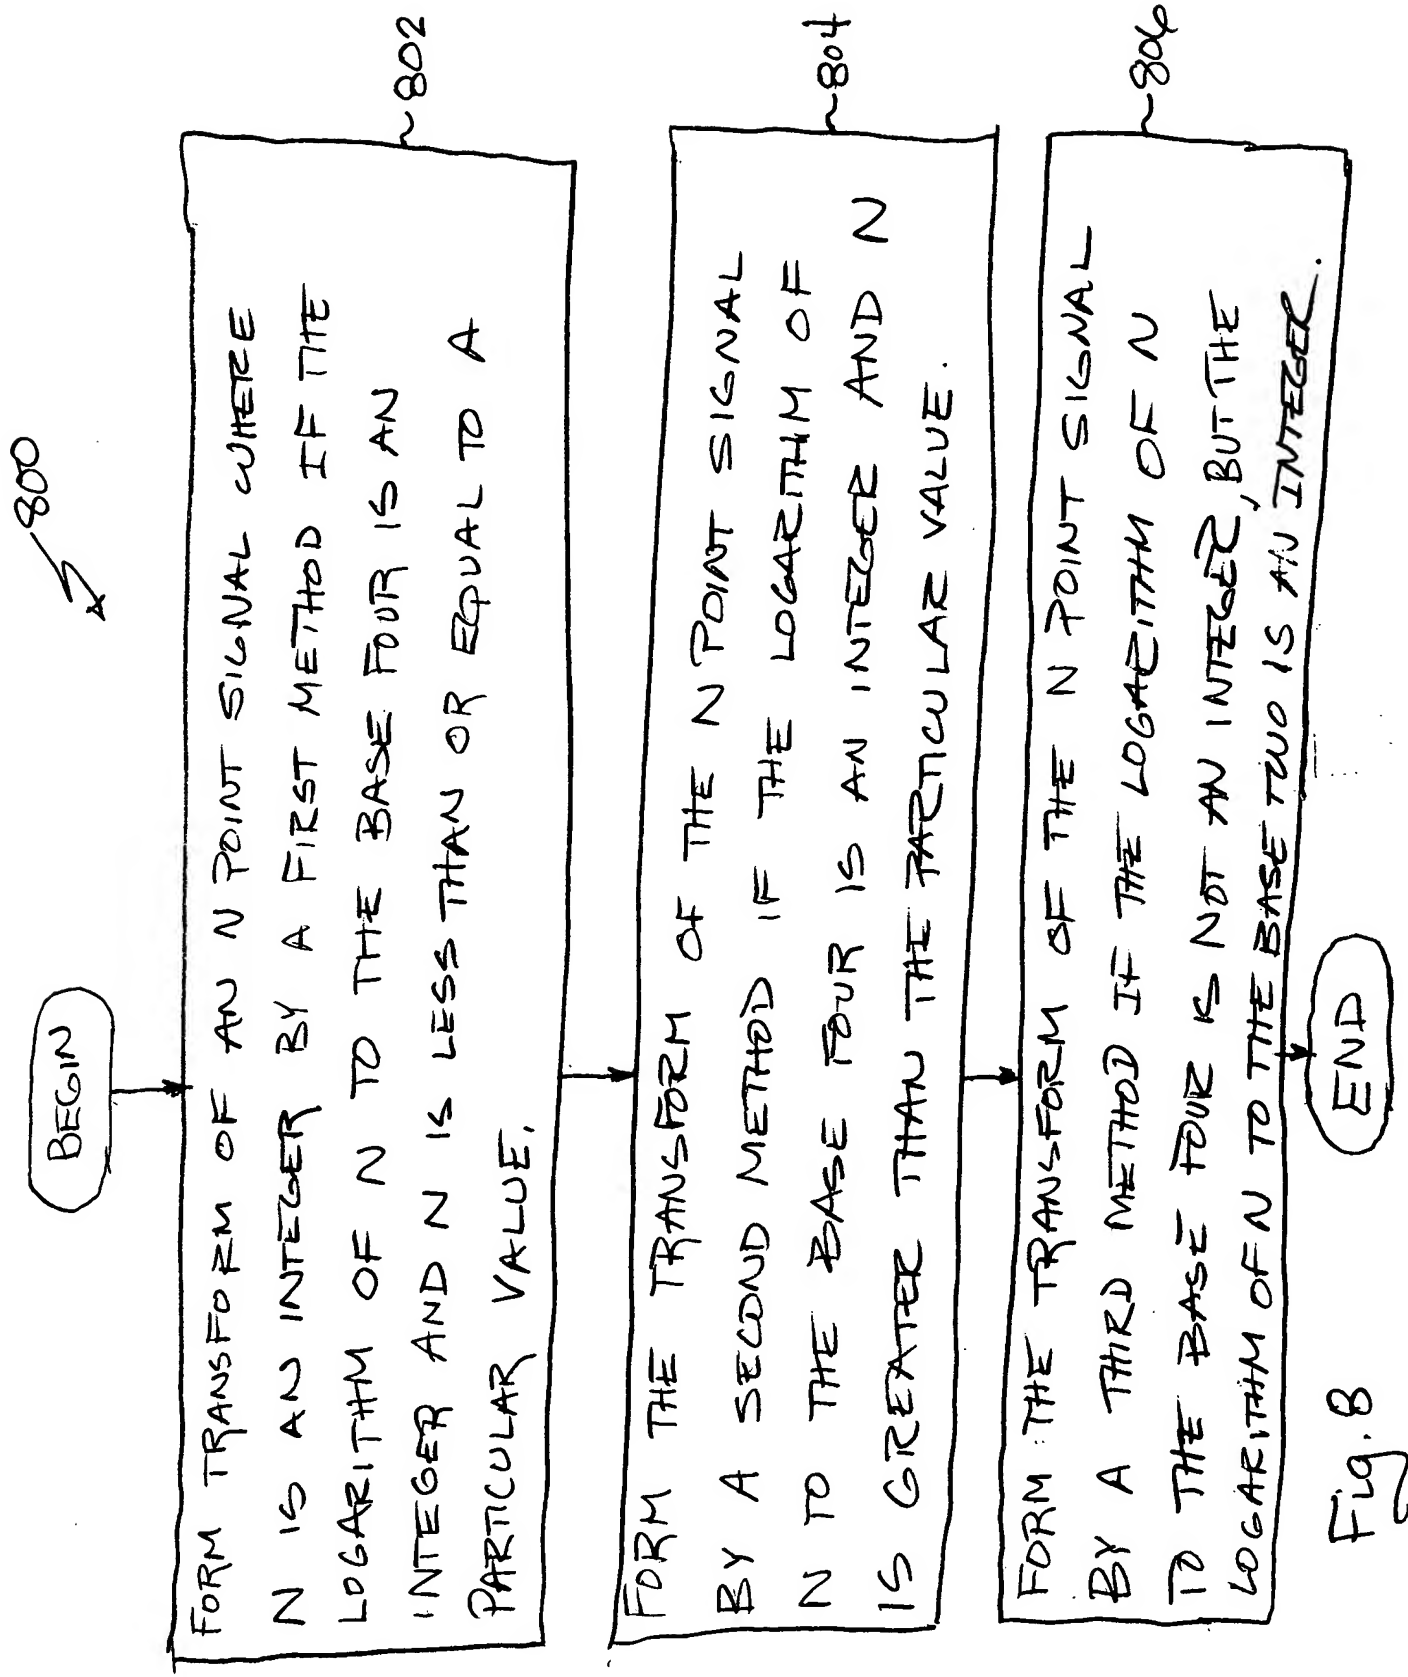 800
BEGIN
FORM TRANSFORM OF AN N POINT SIGNAL WHERE
N IS AN INTEGER BY A FIRST METHOD IF THE
LOGARITHM OF N TO THE BASE FOUR IS AN
INTEGER AND N IS LESS THAN OR EQUAL TO A
PARTICULAR VALUE.
802
FORM THE TRANSFORM OF THE N POINT SIGNAL
BY A SECOND METHOD IF THE LOGARITHM OF
N TO THE BASE FOUR IS AN INTEGER AND N
IS GREATER THAN THE PARTICULAR VALUE.
804
FORM THE TRANSFORM OF THE N POINT SIGNAL
BY A THIRD METHOD IF THE LOGARITHM OF N
TO THE BASE FOUR IS NOT AN INTEGER, BUT THE
LOGARITHM OF N TO THE BASE TWO IS AN INTEGER.
806
END
Fig. 8